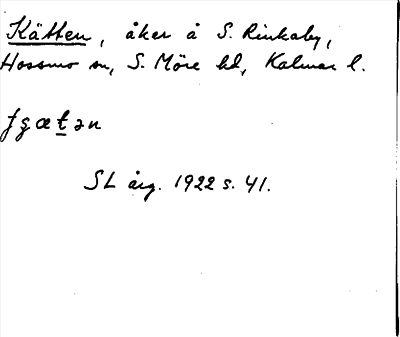 Kätten, åker å S. Rinkaby,
Hossmo sn, S. Möre hd, Kalmar l.
SL årg. 1922 s. 41.